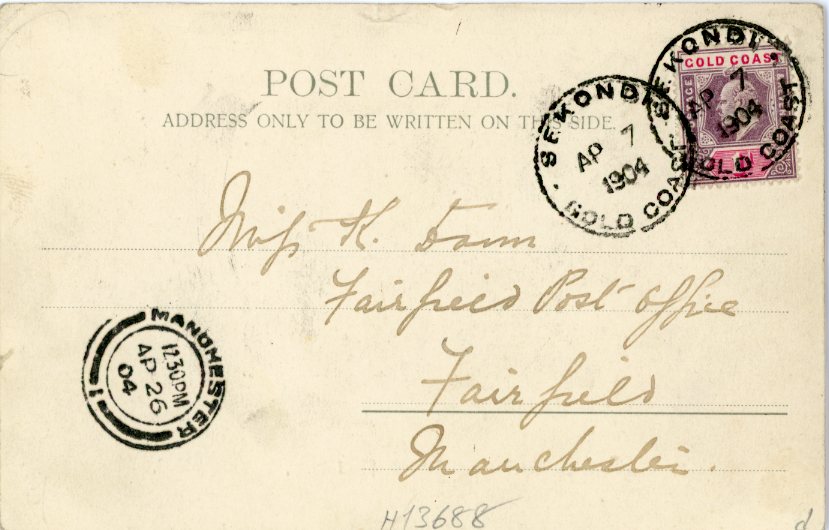 POST CARD.
ADDRESS ONLY TO BE WRITTEN ON THIS SIDE.
GOLD COAST
SEKONDI
AP 7
1904
GOLD COAST
SEKONDI
AP 7
1904
GOLD COAST
Miss K.
Fairfield Post Office
Fairfield
Manchester.
MANCHESTER
12 30 PM
AP 26
04
1
H13688
d